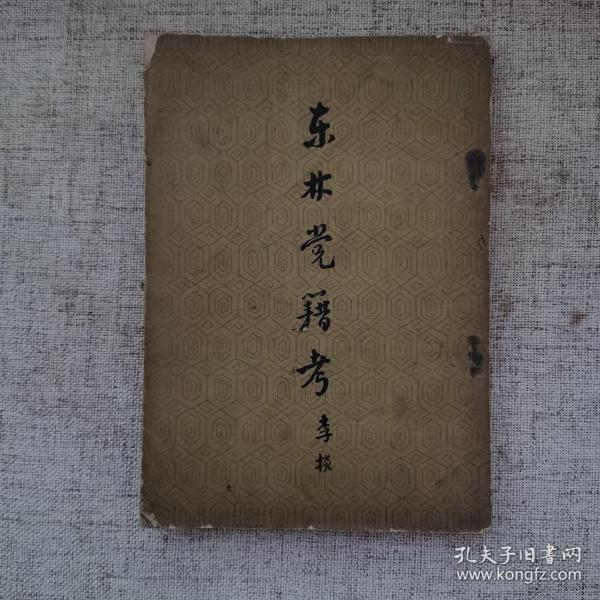 东林党籍考
李棪
孔夫子旧書网
www.kongfz.com